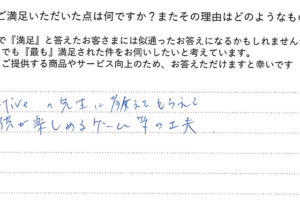 ご満足いただいた点は何ですか？またその理由はどのようなもの
で『満足』と答えたお客さまには似通ったお答えになるかもしれません
でも『最も』満足された件をお伺いしたいと考えています。
ご提供する商品やサービス向上のため、お答えいただけますと幸いです
tive の先生に教えてもらえる
供が楽しめるゲーム等の工夫